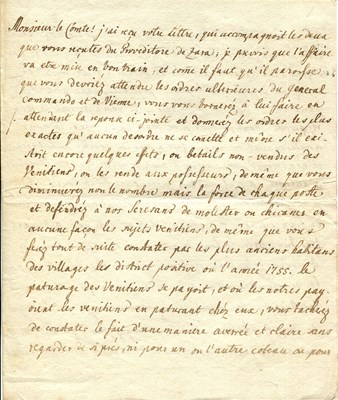 Monsieur le Comte! j'ai reçu votre lettre, qui accompagnoit les deux
que vous reçutes du Proveditore de Zara; je prevois que l'affaire
va etre mise en bon train, et come il faut qu'il paroisse
que vous devriez attendre les ordres ulterieures du General
Commando et de Vienne, vous vous bornerez à lui faire en
attendant la reponse ci-jointe et donnerez les ordres les plus
exactes qu'aucun desordre ne se comette et même s'il exi-
stoit encore quelques effets, ou betails non-vendus des
Venitiens, on les rende aux possesseurs, de même que vous
diminuerez non le nombre mais la force de chaque poste
et defendrez à nos Seresans de molester ou chicaner en
aucune façon les sujets venitiens, de même que vous
ferez tout de suite constater par les plus anciens habitans
des villages le district positive où l'année 1755. le
paturage des Venitiens se payoit, et où les notres pay-
oient les venitiens en paturant chez eux, vous tacherez
de constater le fait d'une maniere averée et claire sans
regarder de si près, ni pour un ou l'autre coteau ou pour